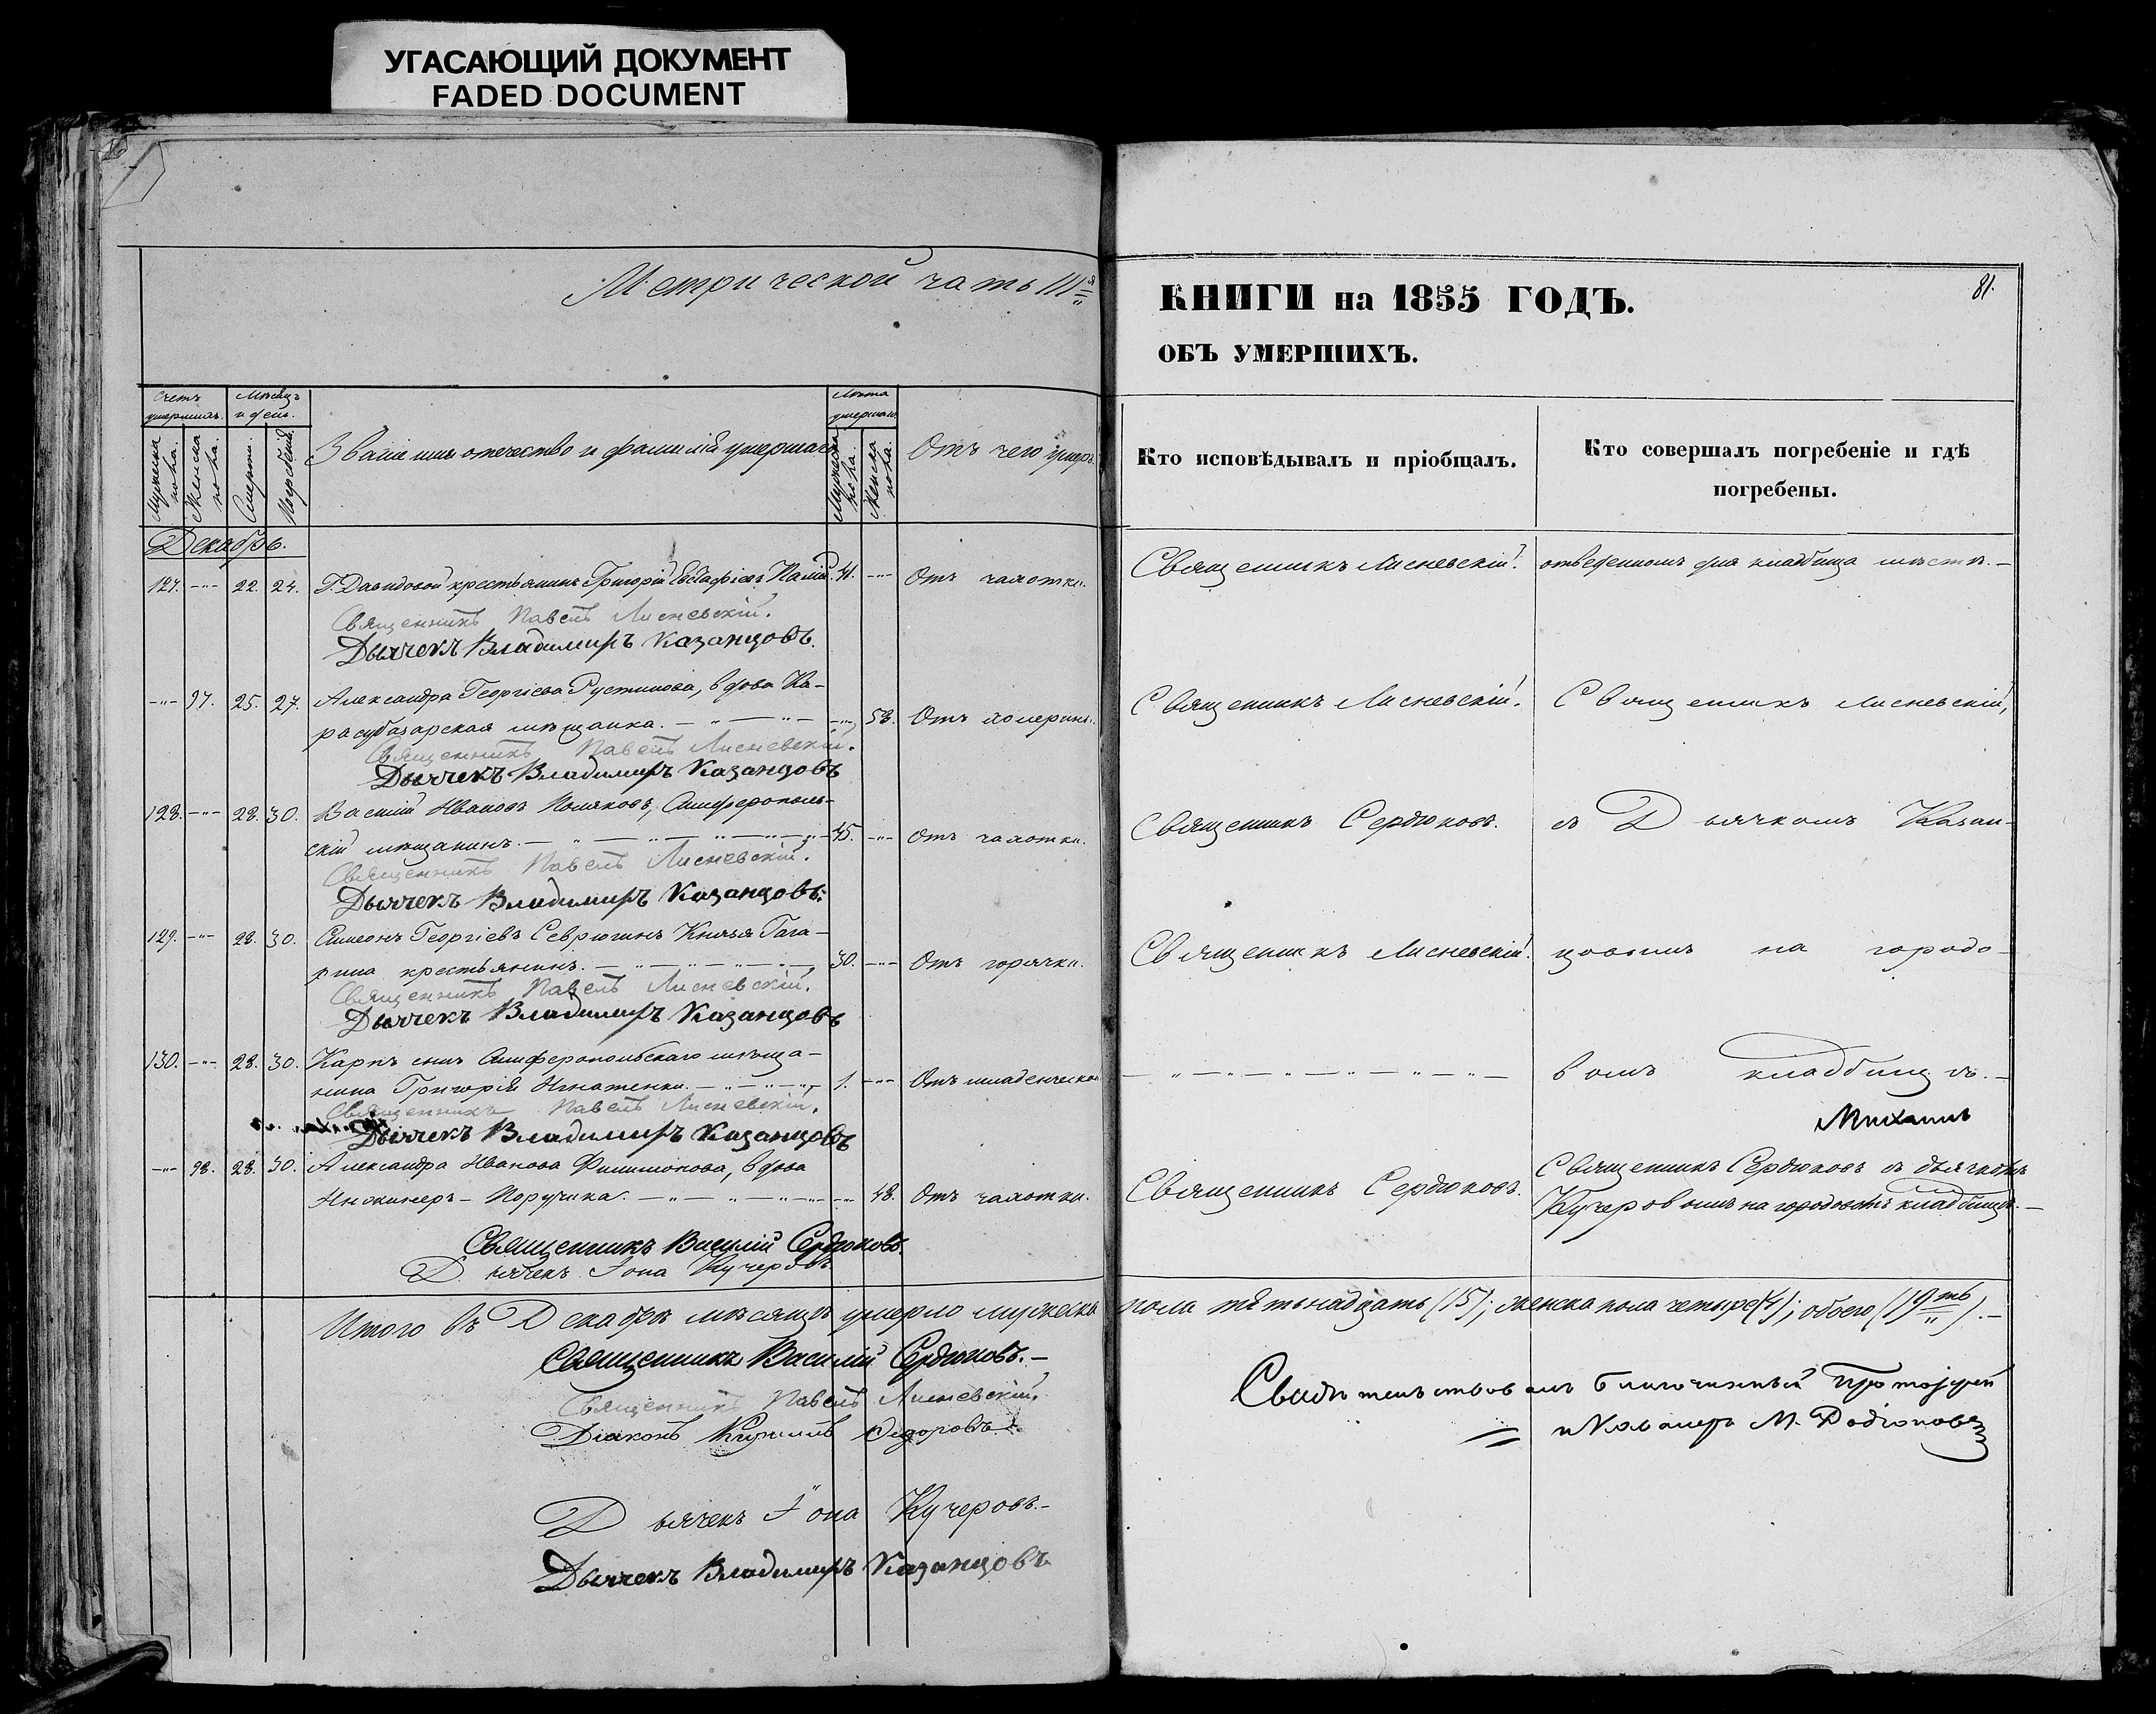 УГАСАЮЩИЙ ДОКУМЕНТ
FADED DOCUMENT
Метрической часть III я
КНИГИ на 1855 ГОДЪ.
81.
ОБЪ УМЕРШИХЪ.
Счетъ умершихъ.
Мѣсяцъ и день.
Званіе имя отечество и фамилія умершаго
Лѣта умершаго
Отъ чего умеръ.
Мужеска пола.
Женска пола.
Смерти.
Погребенія.
Мужеска пола.
Женска пола.
Кто исповѣдывалъ и пріобщалъ.
Кто совершалъ погребеніе и гдѣ
погребены.
Декабрь.
127. -"- 22. 24. Г. Давидовой крестьянинъ Григорій Евстафіевъ 41. -"- Отъ чахотки. Священникъ Лисневскій. отведенномъ для кладбища мѣстѣ.-
Священникъ Павелъ Лисневскій.
Дьячекъ Владимиръ Казанцовъ.
-"- 97. 25. 27. Александра Георгіева Рустикова, вдова Ка-
расубазарская мѣщанка. -"- 58. Отъ холерины. Священникъ Лисневскій. Священникъ Лисневскій,
Священникъ Павелъ Лисневскій.
Дьячекъ Владимиръ Казанцовъ
128. -"- 28. 30. Василій Ивановъ Поляковъ, Симферополь-
скій мѣщанинъ. 45. -"- Отъ чахотки. Священникъ Сердюковъ. съ Дьячкомъ Казан-
Священникъ Павелъ Лисневскій.
Дьячекъ Владимиръ Казанцовъ.
129. -"- 28. 30. Симеонъ Георгіевъ Севрюгинъ Князя Гага-
рина крестьянинъ. 30. -"- Отъ горячки. Священникъ Лисневскій. цовымъ на городо-
Священникъ Павелъ Лисневскій.
Дьячекъ Владимиръ Казанцовъ
130. -"- 28. 30. Карпъ сынъ Симферопольскаго мѣща-
нина Григорія Игнатенки. 1. -"- Отъ младенческой -"- вомъ кладбищѣ.-
Священникъ Павелъ Лисневскій.
Дьячекъ Владимиръ Казанцовъ
Михаилъ
-"- 98. 28. 30. Александра Иванова Филимонова, вдова
Инженеръ-Поручика. -"- 48. Отъ чахотки. Священникъ Сердюковъ. Священникъ Сердюковъ съ дьячкомъ
Кучеровымъ на городовомъ кладбищѣ.-
Священникъ Василій Сердюковъ.
Дьячекъ Іона Кучеровъ
Итого въ Декабрѣ мѣсяцѣ умерло мужеска пола пятьнадцать (15); женска пола четыре (4); обоего (19ть).-
Священникъ Василій Сердюковъ.-
Священникъ Павелъ Лисневскій.
Діаконъ Ѳедоровъ.
Дьячекъ Іона Кучеровъ.-
Дьячекъ Владимиръ Казанцовъ
Свидѣтельствовалъ благочинный Протоіерей
и Кавалеръ М. Родіоновъ